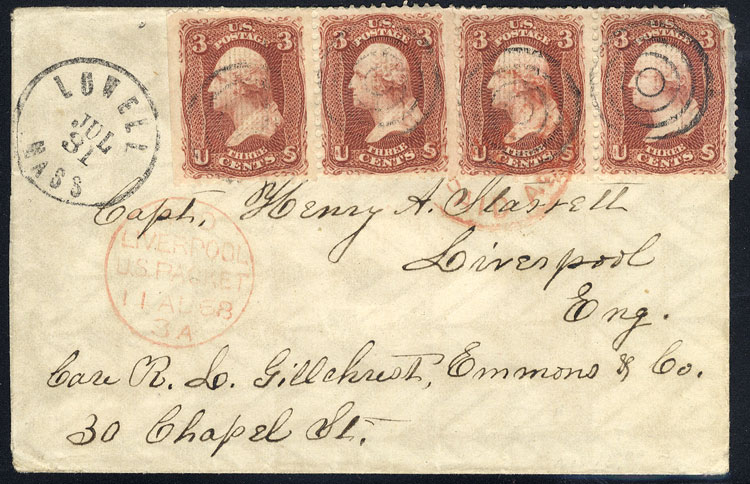 3 U.S. POSTAGE 3
U THREE CENTS S
3 U.S. POSTAGE 3
U THREE CENTS S
3 U.S. POSTAGE 3
U THREE CENTS S
3 U.S. POSTAGE 3
U THREE CENTS S
LOWELL
JUL
31
MASS
Capt. Henry A.
Liverpool
Eng.
LIVERPOOL
U.S. PACKET
11 AU 68
3A
Care R. L. Gillchrest, Emmons & Co.
30 Chapel St.